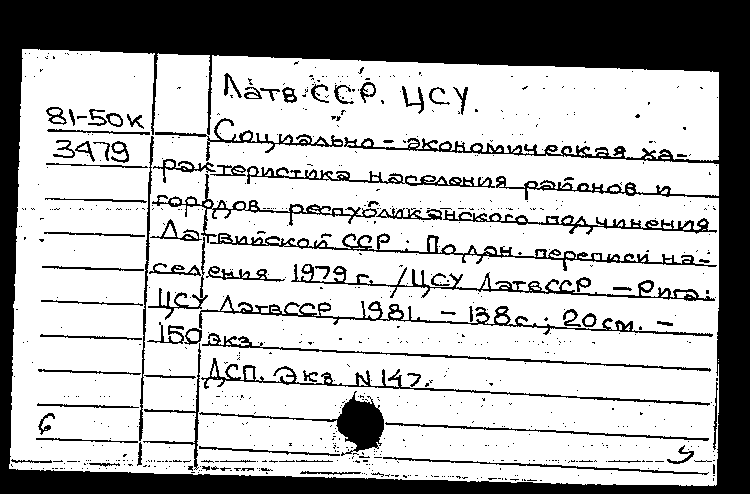 Латв. ССР. ЦСУ.
81-50к
3479
Социально-экономическая ха-
рактеристика населения районов и
городов республиканского подчинения
Латвийской ССР: По дан. переписи на-
селения 1979 г. /ЦСУ ЛатвССР. — Рига:
ЦСУ ЛатвССР, 1981. - 138 с.; 20 см. -
150 экз.
ДСП. Экз. N 147.
6